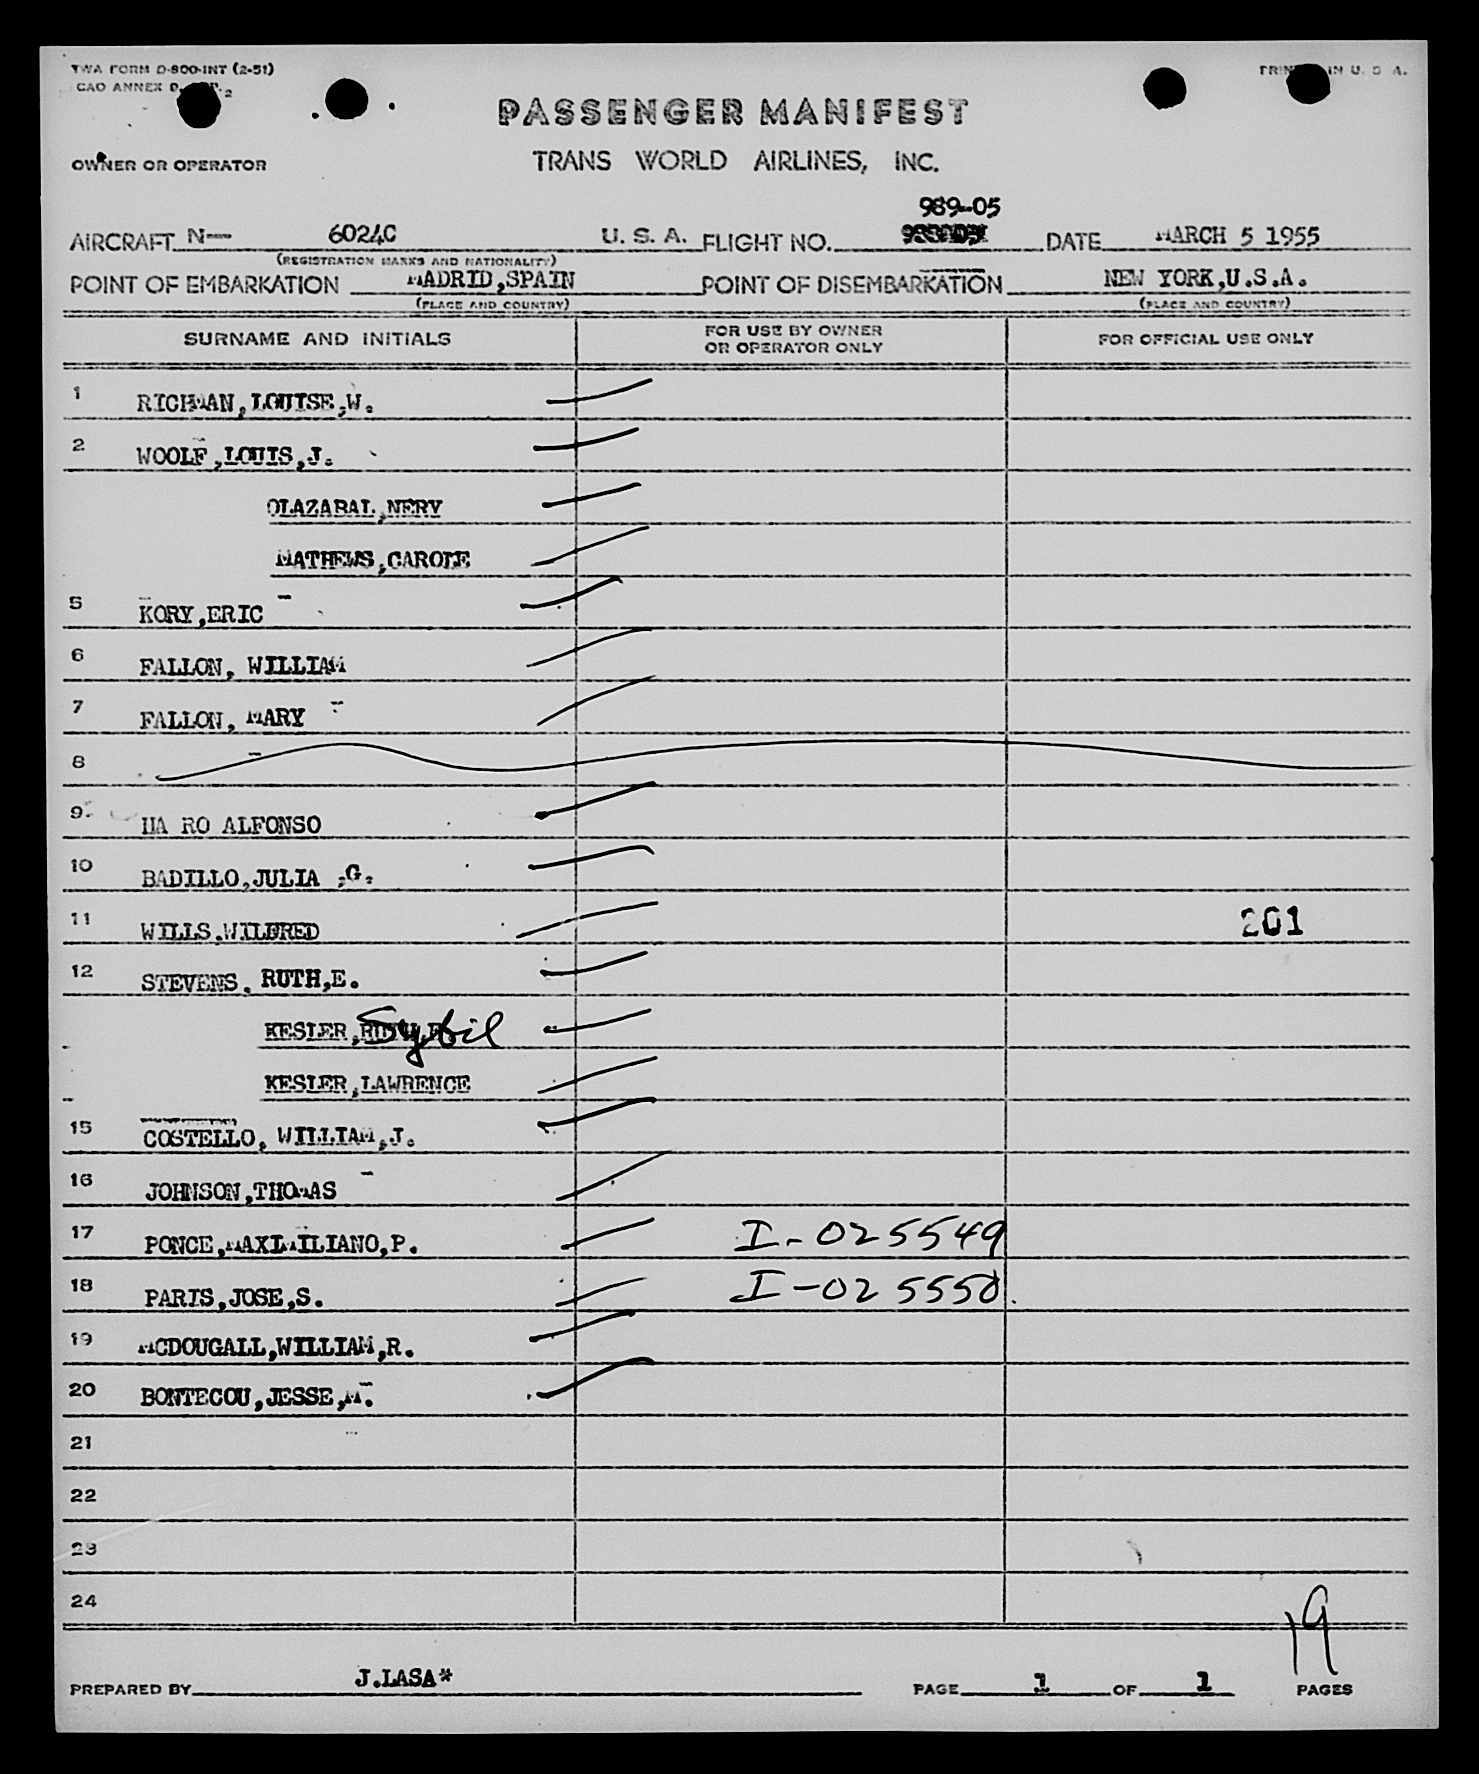 TWA FORM D-800-INT (2-51)
CAO ANNEX 9, 2
PRINTED IN U. S. A.
PASSENGER MANIFEST
OWNER OR OPERATOR
TRANS WORLD AIRLINES, INC.
989-05
AIRCRAFT N— 6024C U. S. A. FLIGHT NO. DATE MARCH 5 1955
(REGISTRATION MARKS AND NATIONALITY)
POINT OF EMBARKATION MADRID,SPAIN POINT OF DISEMBARKATION NEW YORK,U.S.A.
(PLACE AND COUNTRY) (PLACE AND COUNTRY)
SURNAME AND INITIALS FOR USE BY OWNER OR OPERATOR ONLY FOR OFFICIAL USE ONLY
1 RICHMAN,LOUISE,W.
2 WOOLF,LOUIS,J.
OLAZABAL,NERY
MATHEWS,CAROLE
5 KORY,ERIC
6 FALLON, WILLIAM
7 FALLON, MARY
8
9 HA RO ALFONSO
10 BADILLO,JULIA ,G.
11 WILLS,WILDRED 201
12 STEVENS, RUTH,E.
KESLER, Sybil
KESLER,LAWRENCE
15 COSTELLO, WILLIAM,J.
16 JOHNSON,THOMAS
17 PONCE,MAXIMILIANO,P. I-025549
18 PARIS,JOSE,S. I-025550
19 MCDOUGALL,WILLIAM,R.
20 BONTECOU,JESSE,M.
21
22
23
24
19
PREPARED BY J.LASA* PAGE 1 OF 1 PAGES